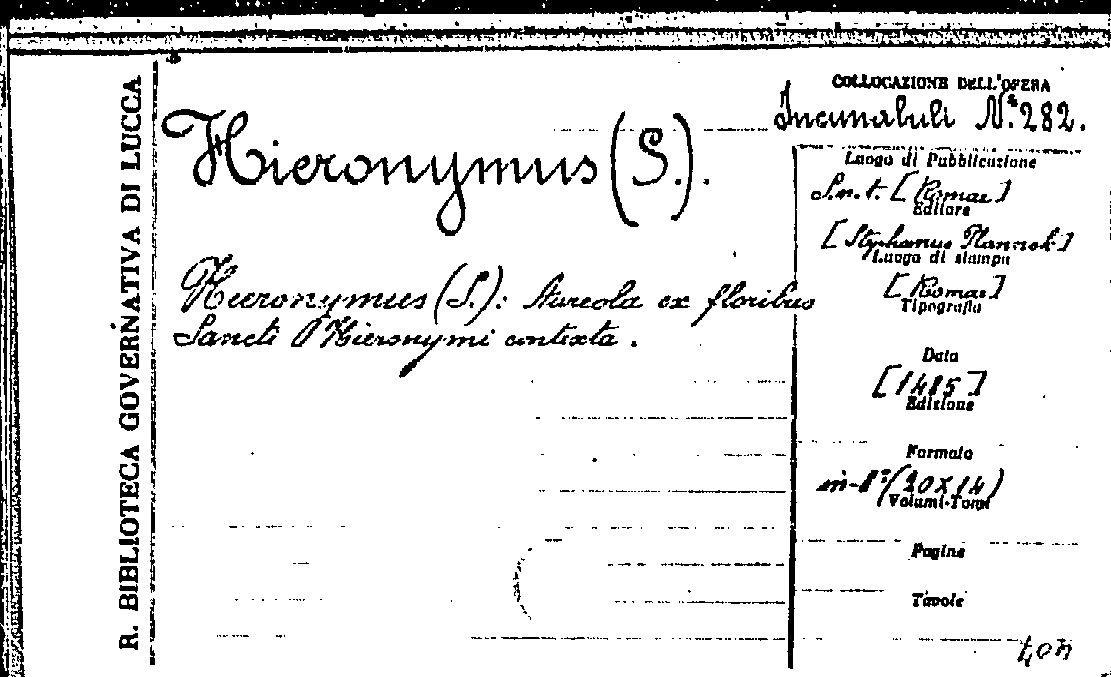 R. BIBLIOTECA GOVERNATIVA DI LUCCA
Hieronymus (S.).
Hieronymus (S.): Aureola ex floribus
Sancti Hieronymi contexta.
COLLOCAZIONE DELL'OPERA
Incunabuli N.° 282.
Luogo di Pubblicazione
S.n.t. [Romae]
Editore
[Stephanus Plannck]
Luogo di stampa
[Romae]
Tipografia
Data
[1485]
Edizione
Formato
in-8° (20X14)
Volumi-Tomi
Pagine
Tavole
404